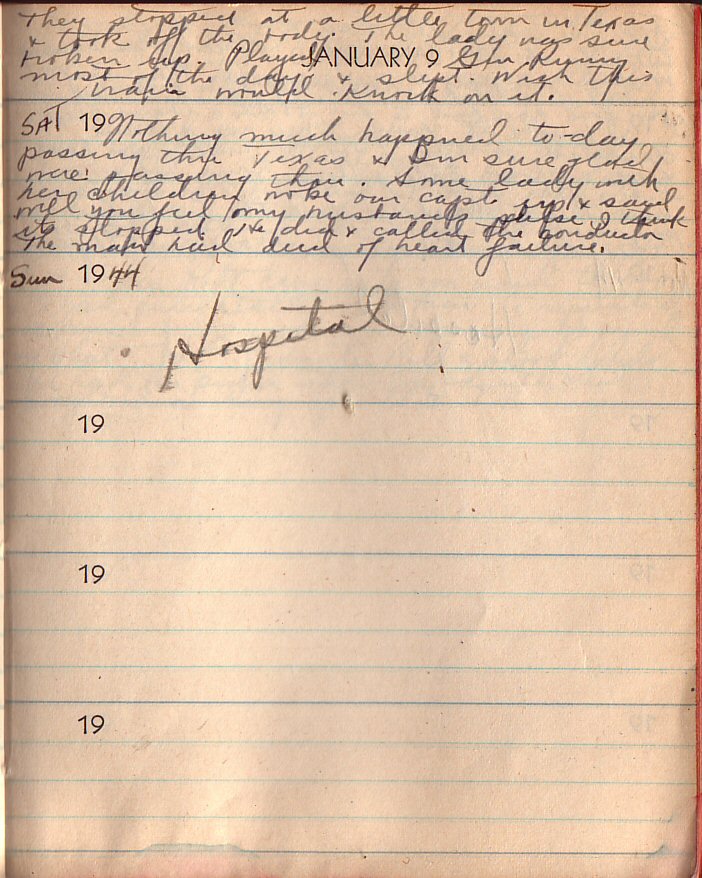 They stopped at a little town in Texas
& took off the body. The lady was sure
broken up. Played Gin Rummy
JANUARY 9
most of the day & slept. Wish this
train would knock on it.
SAT 19 Nothing much happned to-day
passing thru Texas & I'm sure glad
were passing thru. Some lady with
her children woke our capt. up & said
will you feel my husbands pulse I think
its stopped. He did & called the conductor
The man had died of heart failure.
Sun 1944
Hospital
19
19
19